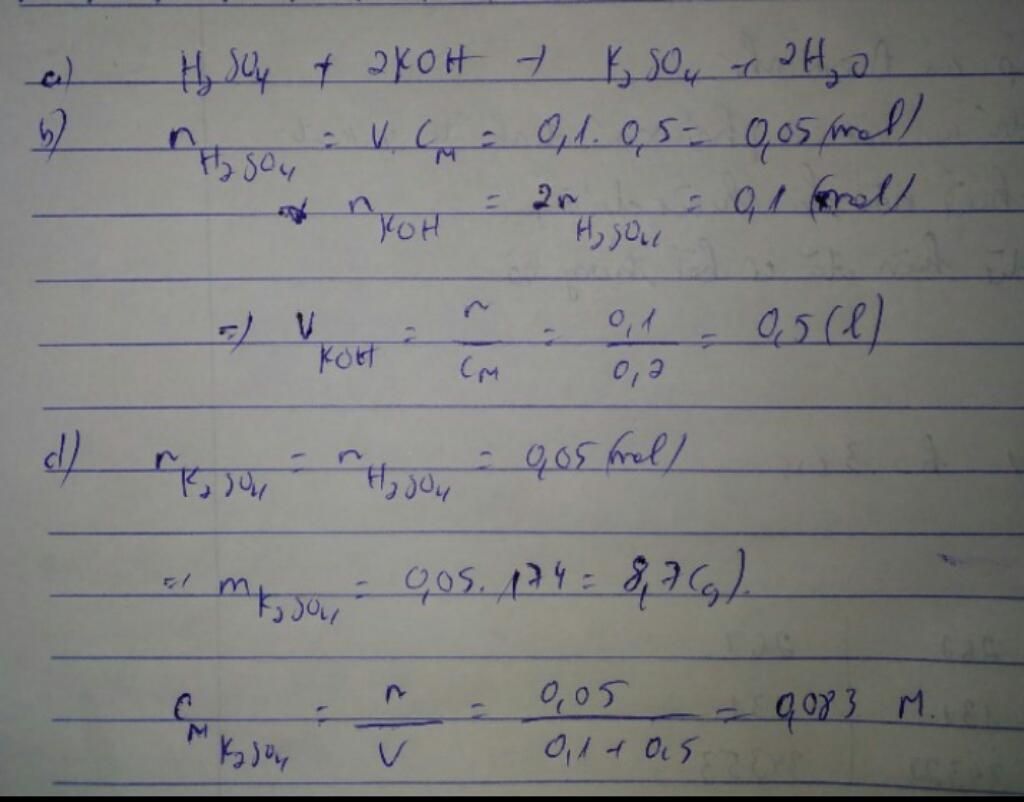 a) H₂SO₄ + 2KOH → K₂SO₄ + 2H₂O
b) n H₂SO₄ = V. C_M = 0,1. 0,5 = 0,05 (mol)
→ n KOH = 2n H₂SO₄ = 0,1 (mol)
=) V KOH = n / C_M = 0,1 / 0,2 = 0,5 (l)
d) n K₂SO₄ = n H₂SO₄ = 0,05 (mol)
=) m K₂SO₄ = 0,05. 174 = 8,7 (g).
C_M K₂SO₄ = n / V = 0,05 / 0,1 + 0,5 = 0,083 M.